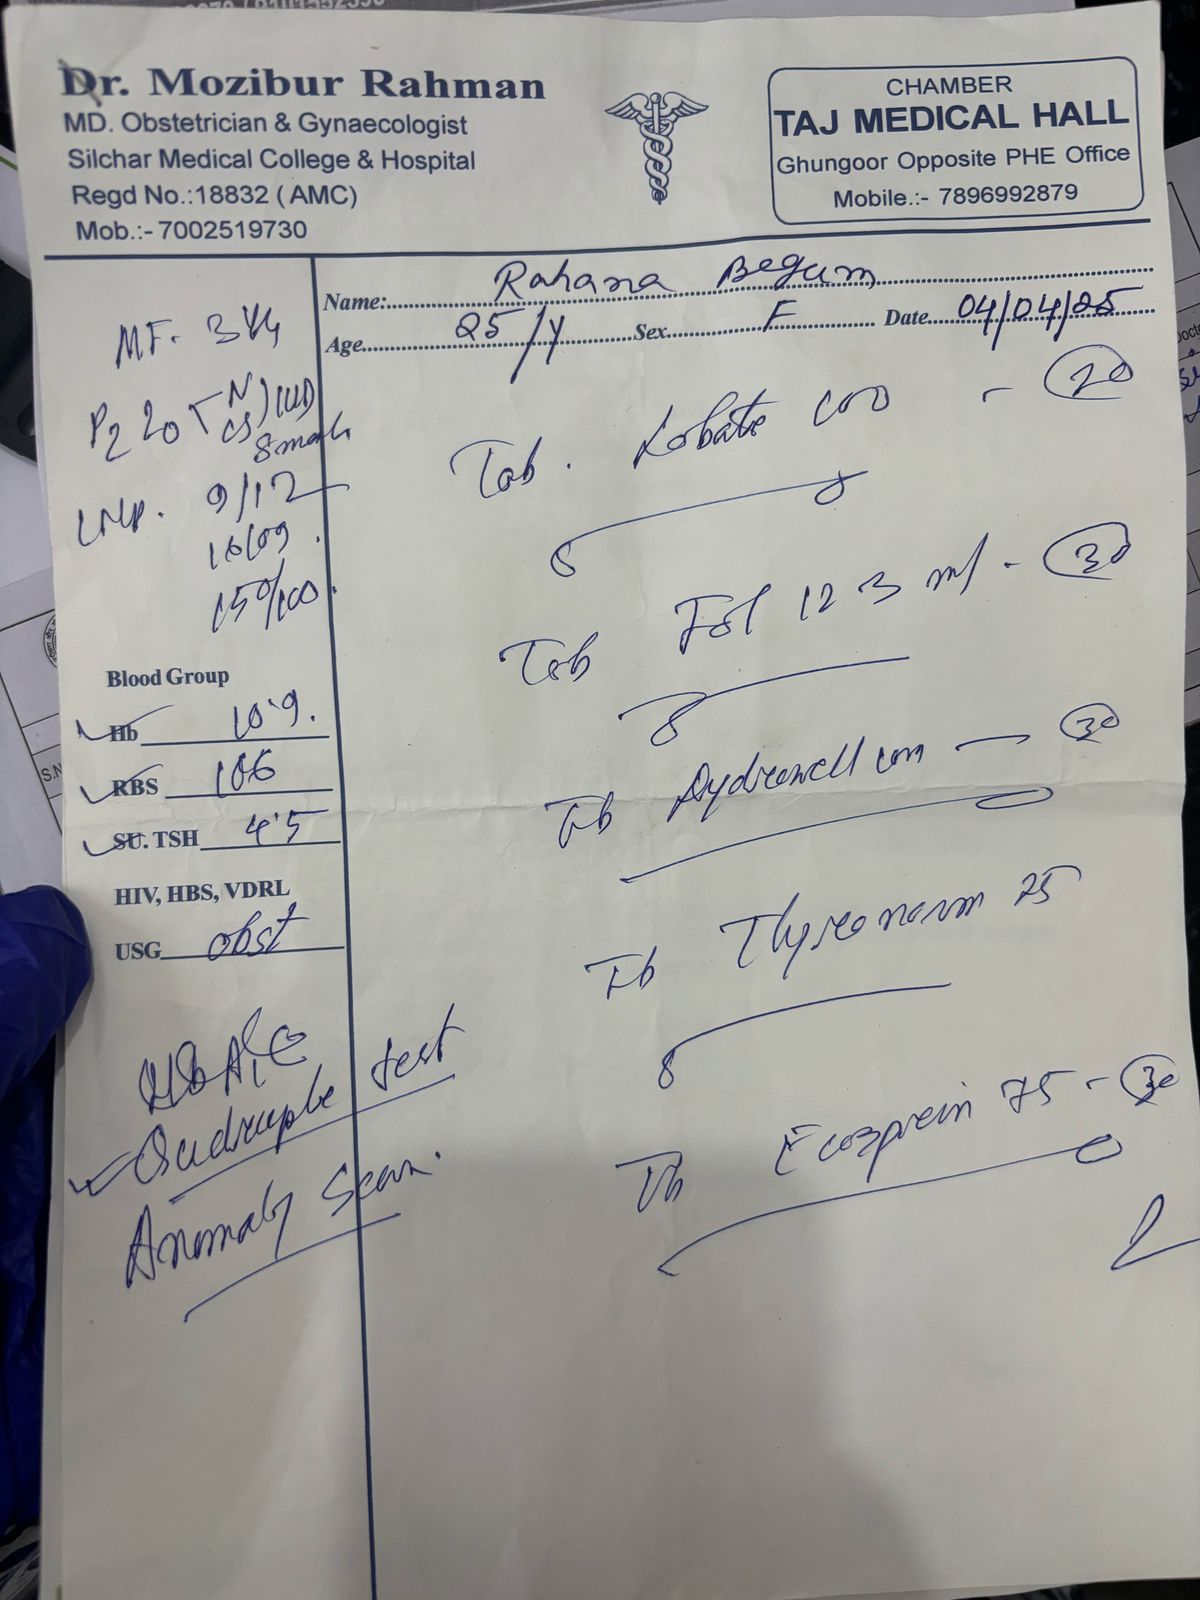 Dr. Mozibur Rahman
MD. Obstetrician & Gynaecologist
Silchar Medical College & Hospital
Regd No.:18832 ( AMC)
Mob.:- 7002519730
CHAMBER
TAJ MEDICAL HALL
Ghungoor Opposite PHE Office
Mobile.:- 7896992879
Name: Rahana Begum
Age 25/y Sex F Date 04/04/25
P2
8 month
LMP. 9/12
16/09
150/100
Blood Group
Hb 10.9.
RBS 106
SU. TSH 4.5
HIV, HBS, VDRL
USG obst
HbA1C
Quadruple test
Anomaly Scan.
Tab. Lobate 100 - 20
Tab Fol 123 - 30
Tb - 30
Tb Thyronorm 75
Tb Ecosprin 75 - 30